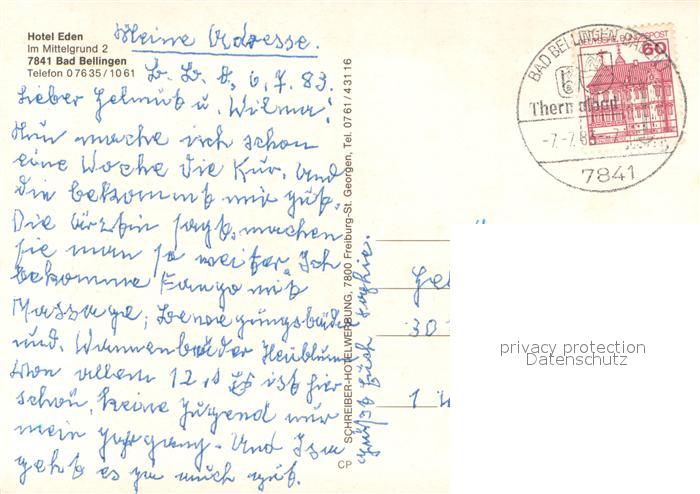 Hotel Eden
Im Mittelgrund 2
7841 Bad Bellingen
Telefon 0 76 35 / 10 61
Meine Adresse.
B. B. d, 6. 7. 83.
Lieber Helmut u. Wilma!
Nun mache ich schon
eine Woche die Kur. Und
die bekommt mir gut.
Die Ärztin sagt, machen
sie man so weiter. Ich
bekomme Fango mit
Massage, Bewegungsbäder
und. Wannenbäder Heublumen
Von allem 12, Es ist hier
schön, keine Jugend nur
mein Jahrgang. Und Ihm
geht es ja auch gut.
Grüßt Euch Sophie.
CP SCHREIBER-HOTELWERBUNG, 7800 Freiburg-St. Georgen, Tel. 07 61 / 4 31 16
BAD BELLINGEN
Thermalbad
-7.-7.83-
7841
DEUTSCHE BUNDESPOST
60
30
1
privacy protection
Datenschutz